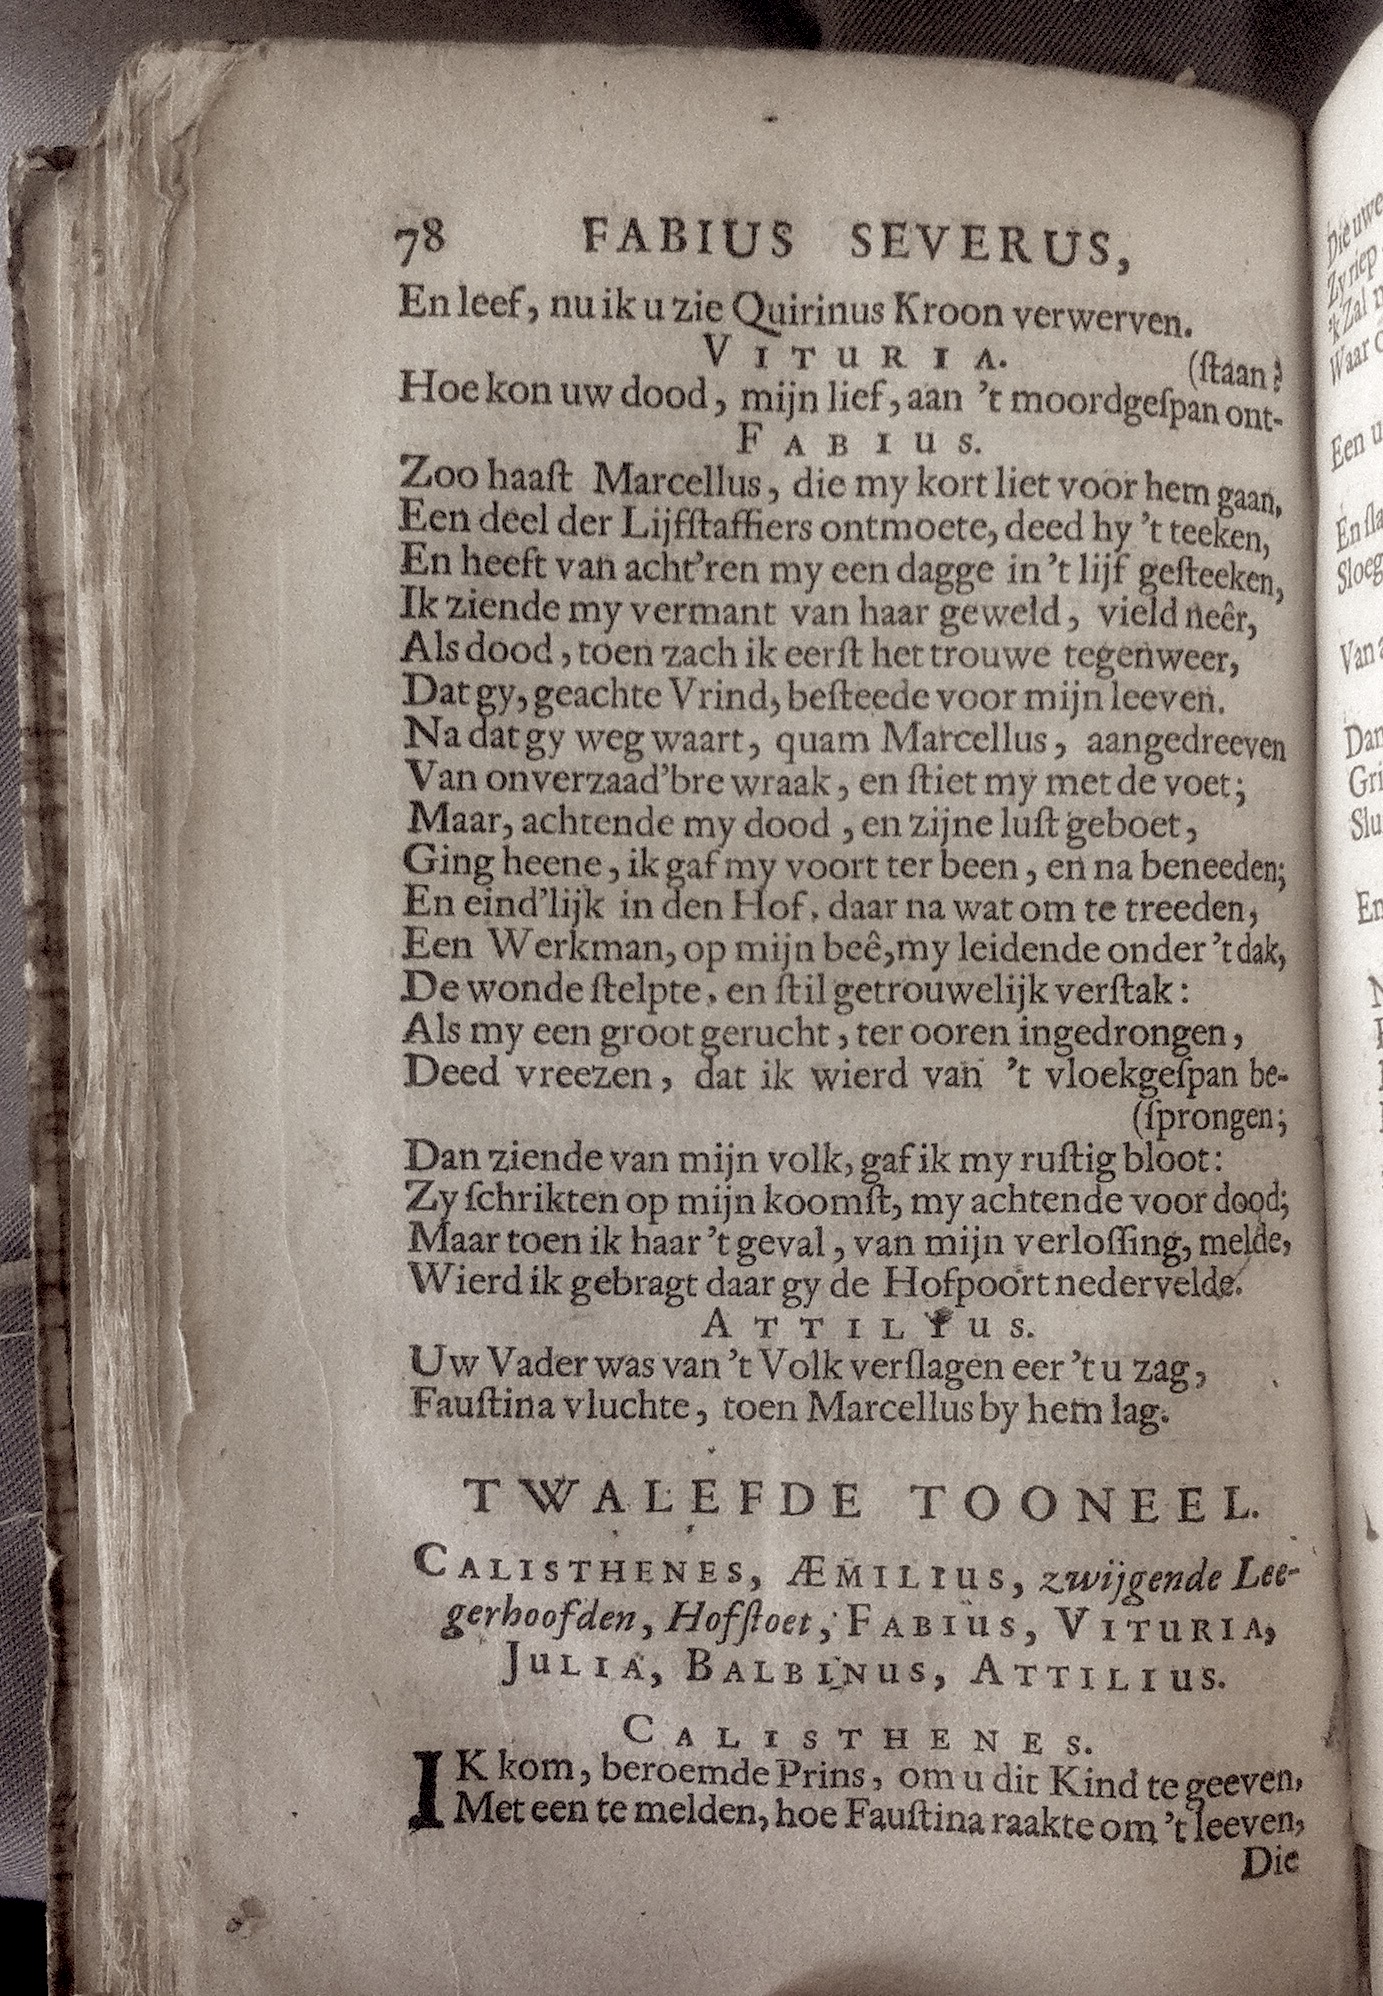 78 FABIUS SEVERUS,
En leef, nu ik u zie Quirinus Kroon verwerven.
VITURIA. (ſtaan?
Hoe kon uw dood, mijn lief, aan 't moordgeſpan ont-
FABIUS.
Zoo haaſt Marcellus, die my kort liet voor hem gaan,
Een deel der Lijfſtaffiers ontmoete, deed hy 't teeken,
En heeft van acht'ren my een dagge in 't lijf geſteeken,
Ik ziende my vermant van haar geweld, vield neêr,
Als dood, toen zach ik eerſt het trouwe tegenweer,
Dat gy, geachte Vrind, beſteede voor mijn leeven.
Na dat gy weg waart, quam Marcellus, aangedreeven
Van onverzaad'bre wraak, en ſtiet my met de voet;
Maar, achtende my dood, en zijne luſt geboet,
Ging heene, ik gaf my voort ter been, en na beneeden;
En eind'lijk in den Hof, daar na wat om te treeden,
Een Werkman, op mijn beê, my leidende onder 't dak,
De wonde ſtelpte, en ſtil getrouwelijk verſtak:
Als my een groot gerucht, ter ooren ingedrongen,
Deed vreezen, dat ik wierd van 't vloekgeſpan be-
(ſprongen;
Dan ziende van mijn volk, gaf ik my ruſtig bloot:
Zy ſchrikten op mijn koomſt, my achtende voor dood;
Maar toen ik haar 't geval, van mijn verloſſing, melde,
Wierd ik gebragt daar gy de Hofpoort nedervelde.
ATTILIUS.
Uw Vader was van 't Volk verſlagen eer 't u zag,
Fauſtina vluchte, toen Marcellus by hem lag.
TWALEFDE TOONEEL.
CALISTHENES, ÆMILIUS, zwijgende Lee-
gerhoofden, Hofſtoet, FABIUS, VITURIA,
JULIA, BALBINUS, ATTILIUS.
CALISTHENES.
IK kom, beroemde Prins, om u dit Kind te geeven,
Met een te melden, hoe Fauſtina raakte om 't leeven,
Die